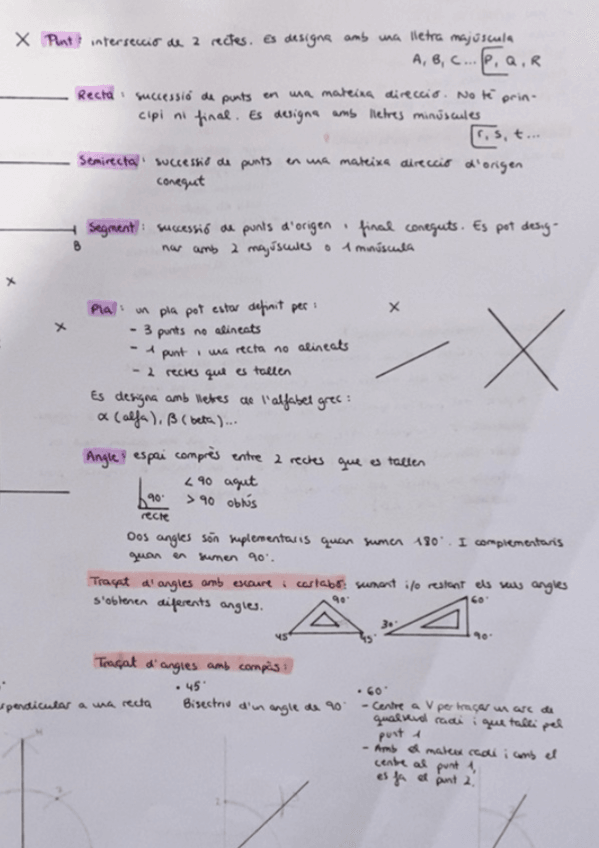 Punt: intersecció de 2 rectes. Es designa amb una lletra majúscula
A, B, C... P, Q, R
Recta: successió de punts en una mateixa direcció. No té prin-
cipi ni final. Es designa amb lletres minúscules
r, s, t...
Semirecta: successió de punts en una mateixa direcció d'origen
conegut
Segment: successió de punts d'origen i final coneguts. Es pot desig-
nar amb 2 majúscules o 1 minúscula
B
Pla: un pla pot estar definit per:
- 3 punts no alineats
- 1 punt i una recta no alineats
- 2 rectes que es tallen
Es designa amb lletres de l'alfabet grec:
α (alfa), β (beta)...
Angle: espai comprès entre 2 rectes que es tallen
< 90 agut
90° > 90 obtús
recte
Dos angles són suplementaris quan sumen 180°. I complementaris
quan en sumen 90°.
Traçat d'angles amb escaire i cartabó: sumant i/o restant els seus angles
s'obtenen diferents angles.
90° 60°
45° 45° 30° 90°
Traçat d'angles amb compàs:
• 45° • 60°
perpendicular a una recta Bisectriu d'un angle de 90° - Centre a V per traçar un arc de
qualsevol radi i que talli pel
punt 1
- Amb el mateix radi i amb el
centre al punt 1,
es fa el punt 2.